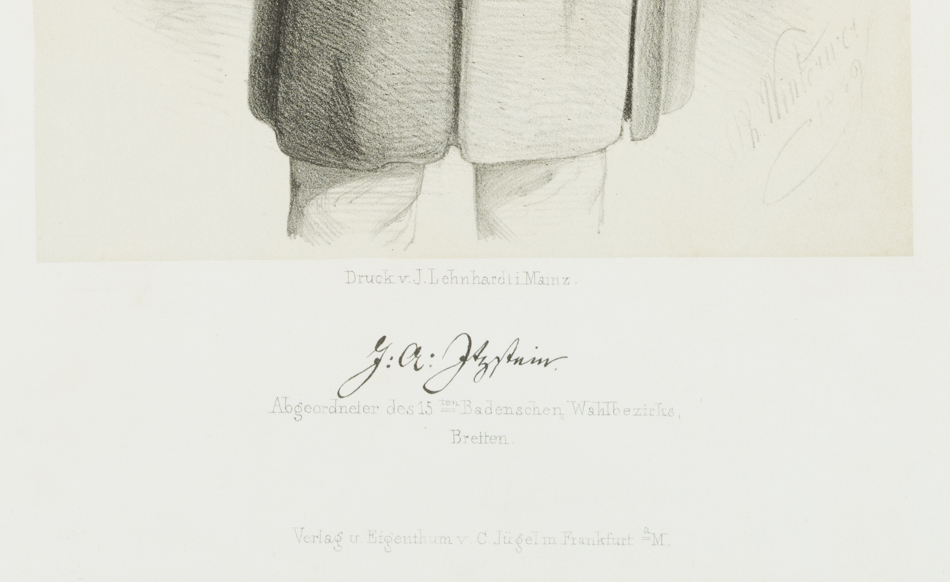 Ph. Winterwerb
18
Druck v. J. Lehnhardt i. Mainz.
J: A: Itzstein.
Abgeordneter des 15ten Badenschen Wahlbezirks,
Bretten.
Verlag u. Eigenthum v. C. Jügel in Frankfurt a/M.